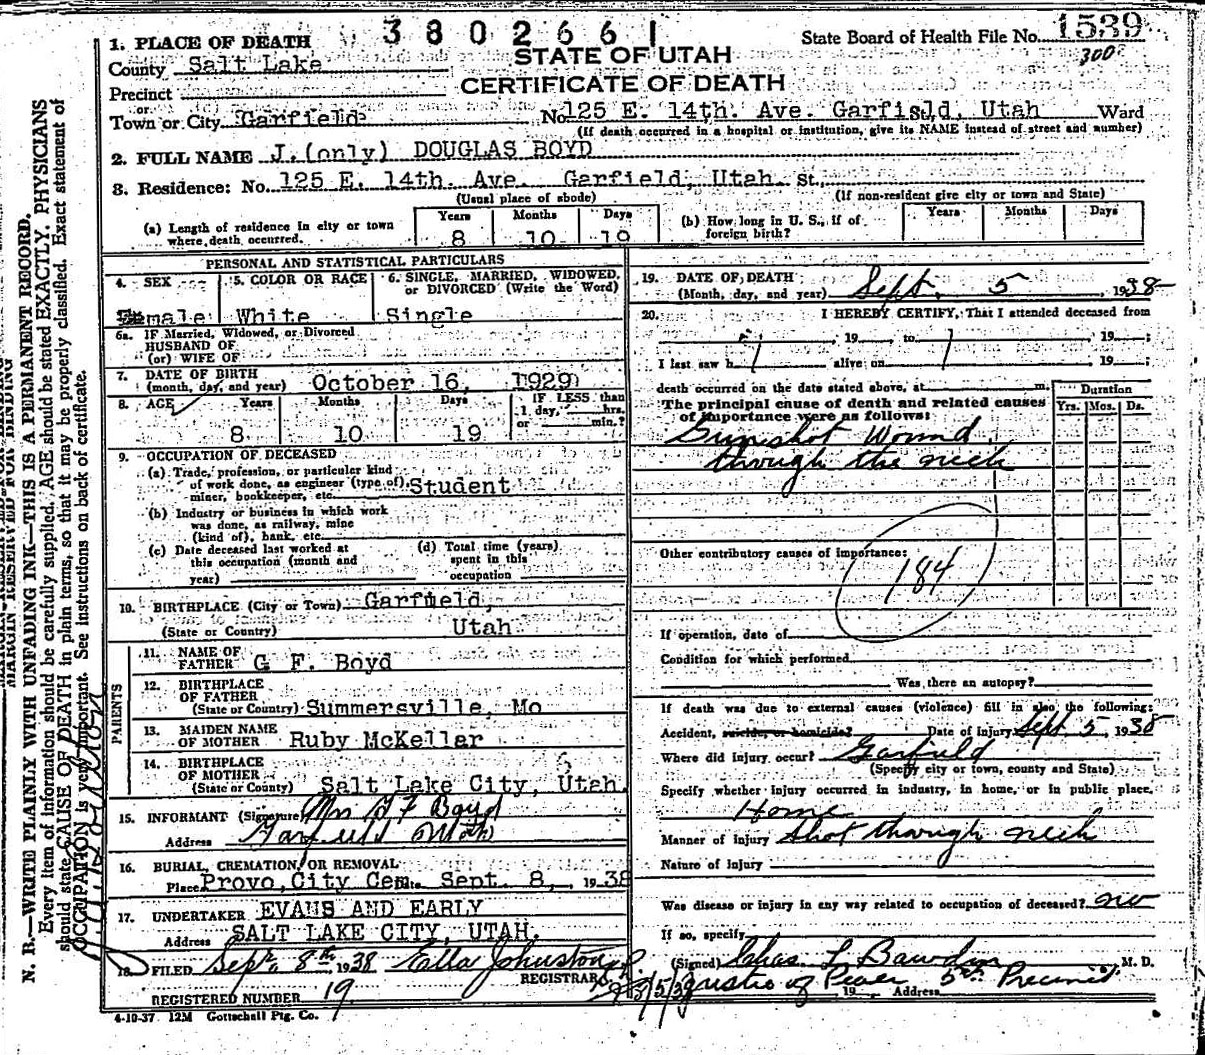 380266 1
State Board of Health File No. 1539
300
STATE OF UTAH
CERTIFICATE OF DEATH
1. PLACE OF DEATH
County Salt Lake
Precinct
or
Town or City Garfield No. 125 E. 14th. Ave. Garfield, Utah Ward
(If death occurred in a hospital or institution, give its NAME instead of street and number)
2. FULL NAME J.(only) DOUGLAS BOYD
3. Residence: No. 125 E. 14th. Ave. Garfield, Utah st.
(Usual place of abode) (If non-resident give city or town and State)
(a) Length of residence in city or town where death occurred. Years 8 Months 10 Days 19
(b) How long in U. S., if of foreign birth? Years Months Days
PERSONAL AND STATISTICAL PARTICULARS
4. SEX 5. COLOR OR RACE 6. SINGLE, MARRIED, WIDOWED, or DIVORCED (Write the Word)
male White Single
6a. IF Married, Widowed, or Divorced
HUSBAND OF
(or) WIFE OF
7. DATE OF BIRTH
(month, day, and year) October 16, 1929
8. AGE Years Months Days IF LESS than
1 day, hrs.
or min.?
8 10 19
9. OCCUPATION OF DECEASED
(a) Trade, profession, or particular kind
of work done, as engineer (type of), Student
miner, bookkeeper, etc.
(b) Industry or business in which work
was done, as railway, mine
(kind of), bank, etc.
(c) Date deceased last worked at
this occupation (month and
year)
(d) Total time (years)
spent in this
occupation
10. BIRTHPLACE (City or Town) Garfield,
(State or Country) Utah
PARENTS
11. NAME OF
FATHER G F. Boyd
12. BIRTHPLACE
OF FATHER
(State or Country) Summersville, Mo
13. MAIDEN NAME
OF MOTHER Ruby McKellar
14. BIRTHPLACE
OF MOTHER
(State or County) Salt Lake City, Utah.
15. INFORMANT (Signature) Mrs G F Boyd
Address Garfield Utah
16. BURIAL, CREMATION, OR REMOVAL
Place Provo, City Cem. Sept. 8, 1938
17. UNDERTAKER EVANS AND EARLY
Address SALT LAKE CITY, UTAH.
18. FILED Sept. 8th 1938 Ella Johnston
REGISTRAR
REGISTERED NUMBER 19
4-10-37 12M Gottschall Ptg. Co.
19. DATE OF DEATH
(Month, day, and year) Sept. 5, 1938
20. I HEREBY CERTIFY, That I attended deceased from
, 19 to 19 ;
I last saw h alive on 19 ;
death occurred on the date stated above, at m.
The principal cause of death and related causes
of importance were as follows:
Duration
Yrs. Mos. Ds.
Gunshot Wound
through the neck
Other contributory causes of importance:
184
If operation, date of
Condition for which performed
Was there an autopsy?
If death was due to external causes (violence) fill in also the following:
Accident, suicide, or homicide? Date of Injury Sept. 5, 1938
Where did injury occur? Garfield
(Specify city or town, county and State)
Specify whether injury occurred in industry, in home, or in public place,
Home
Manner of injury Shot through neck
Nature of Injury
Was disease or injury in any way related to occupation of deceased? no
If so, specify
(Signed) Chas. L Bawden M. D.
Justice of Peace 19 Address 5th Precinct
N. B.—WRITE PLAINLY WITH UNFADING INK—THIS IS A PERMANENT RECORD.
Every item of information should be carefully supplied. AGE should be stated EXACTLY. PHYSICIANS
should state CAUSE OF DEATH in plain terms, so that it may be properly classified. Exact statement of
OCCUPATION is very important. See instructions on back of certificate.
MARGIN RESERVED FOR BINDING